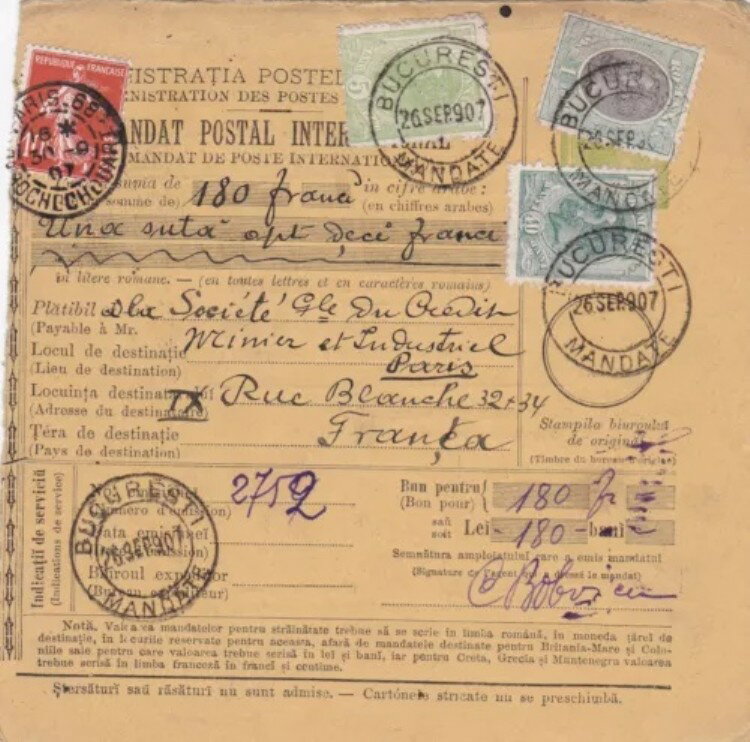 REPUBLIQUE FRANÇAISE
PARIS
ROCHECHOUART
NISTRAȚIA POSTEL
NISTRATION DES POSTES
NDAT POSTAL INTER
MANDAT DE POSTE INTERNATION
BUCURESTI
26 SEP. 907
MANDATE
BUCUR
26 SEP. 90
MANDATE
suma de 180 franci in cifre arabe:
somme de) (en chiffres arabes)
Una sută opt deci franci
in litere romane. — (en toutes lettres et en caractères romains)
BUCURESTI
26 SEP. 907
MANDATE
Plătibil Dlui Société Gle Du Credit
(Payable à Mr.
Locul de destinație Minier et Industriel
(Lieu de destination) Paris
Locuința destinatarului IX Rue Blanche 32+34
(Adresse du destinataire)
Țéra de destinație Franța
(Pays de destination)
Stampila biuroului
de origină
(Timbre du bureau d'origine)
Indicații de serviciŭ
(Indications de service)
2752
(Numéro d'émission)
BUCURESTI
26 SEP. 907
MANDATE
Biuroul expeditor
Bun pentru 180 fr
(Bon pour)
saŭ
soit Lei - 180 - banĭ
Semnătura amploiatului care a emis mandatul
(Signature de l'agent qui a dressé le mandat)
Notă. Valorea mandatelor pentru străinătate trebue să se scrie în limba română, în moneda țărei de
destinație, în locurile reservate pentru aceasta, afară de mandatele destinate pentru Britania-Mare și Colo-
niile sale pentru care valoarea trebue scrisă în lei și bani, iar pentru Creta, Grecia și Muntenegru valoarea
trebue scrisă în limba franceză în franci și centime.
Ștersături saŭ răsături nu sunt admise. — Cartónele stricate nu se preschimbă.